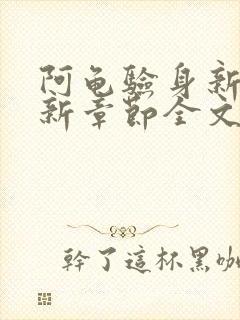 阿龟验身新
新章节全文
幹了這杯黑咖